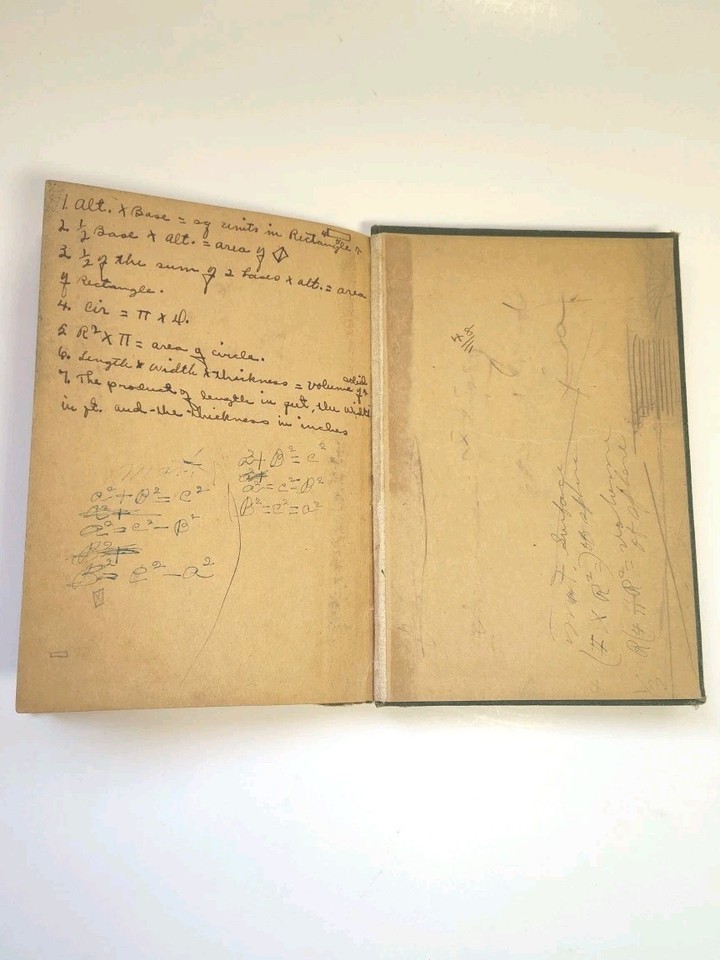 1. Alt. X Base = sq units in Rectangle
2 1/2 Base X alt. = area of
3 1/2 of the sum of 2 bases X alt. = area
of Rectangle.
4. Cir = π X D.
5. R² X π = area of circle.
6. Length X width X thickness = volume of solid
7. The product of length in feet, the width
in ft. and the thickness in inches
a² + B² = c²
a² = c² - B²
B² = c² - a²
a² + B² = c²
a² = c² = B²
B² = c² = a²
48
Surface
(4 X R²) of sphere
R(4πR² = volume
1/3 of sphere